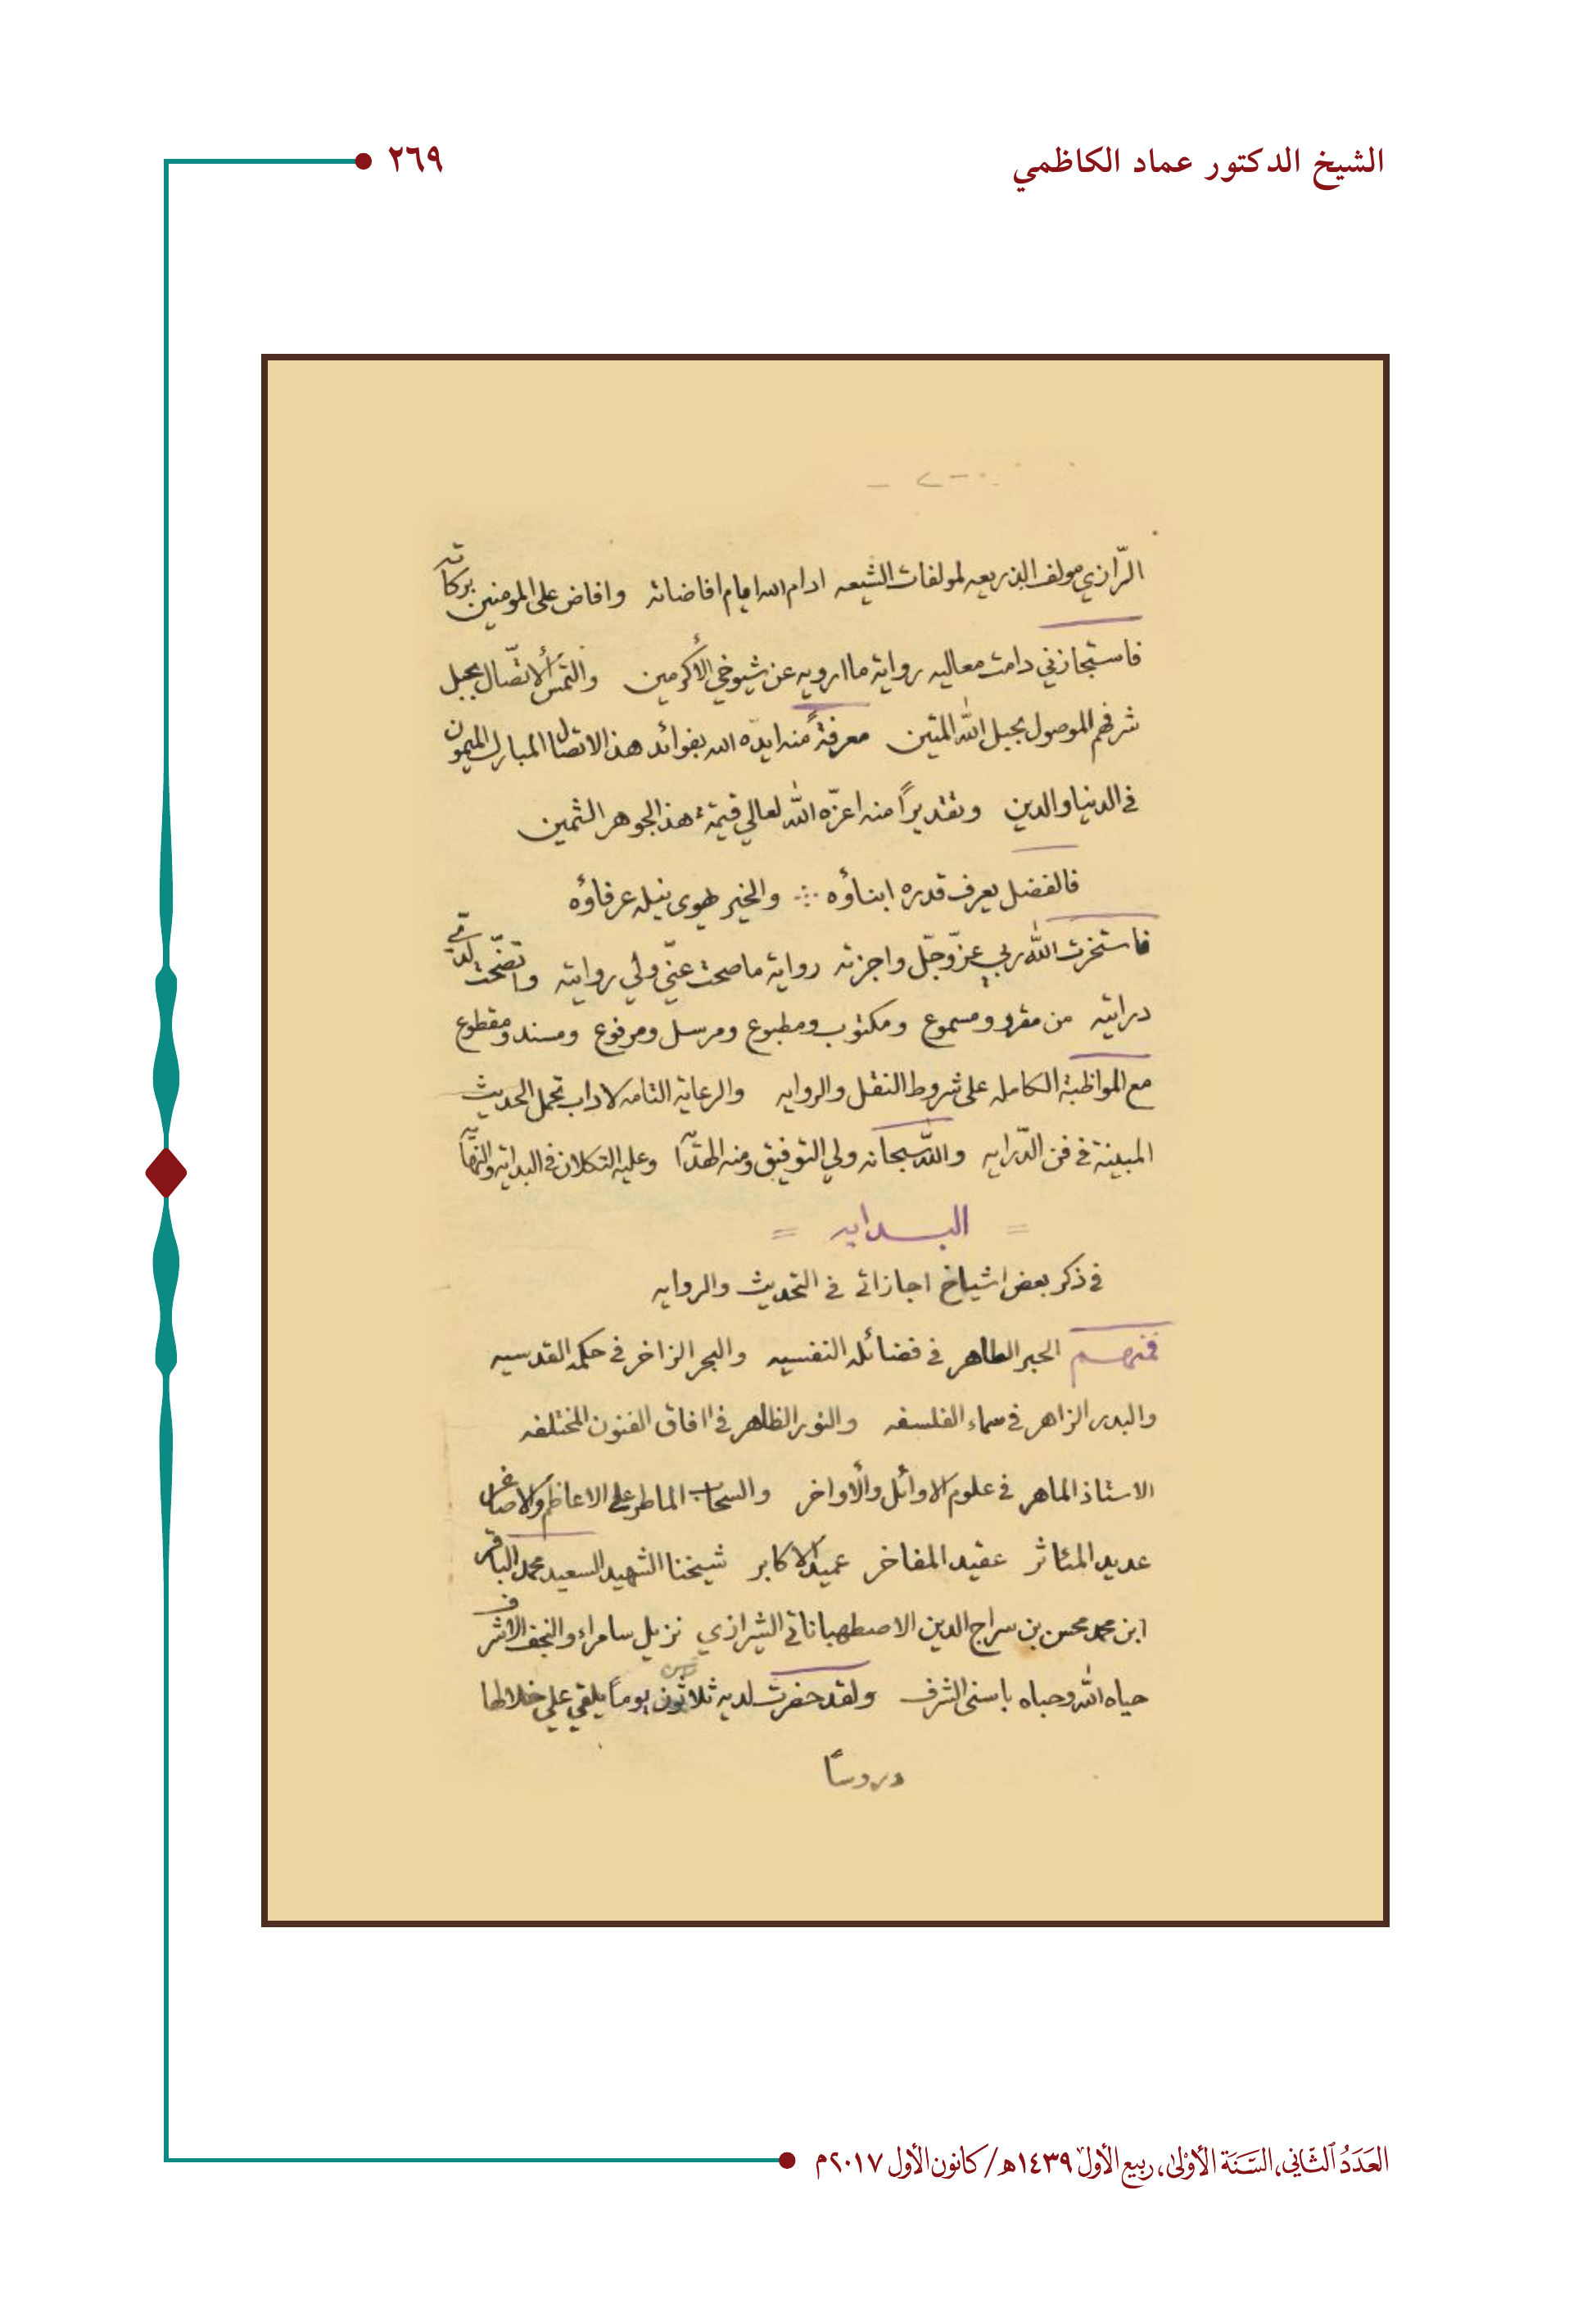 الشيخ الدكتور عماد الكاظمي
٢٦٩
- ٢ -
الرّازي مولف الذريعه لمولفات الشيعه ادام الله ايام افاضاته وافاض على المومنين بركاته
فاستجازني دامت معاليه رواية ما ارويه عن شيوخي الأكرمين والتمس ألاتّصال بحبل
شرفهم الموصول بحبل الله المتين معرفةً منه ايدّه الله بفوائد هذ الاتصال المبارك الميمون
في الدنيا والدين وتقديراً منه اعزّه الله لعالي قيمة هذ الجوهر الثمين
فالفضل يعرف قدره ابناؤه ∴ والخير يهوى نيله عرفاؤه
فاستخرت الله ربي عزّوجّل واجزته رواية ما صحت عنّي ولي روايته واتضّحت لديّ
درايته من مقرو ومسموع ومكتوب ومطبوع ومرسل ومرفوع ومسند ومقطوع
مع المواظبة الكامله على شروط النقل والروايه والرعاية التامه لاداب تحمل الحديث
المبينة في فن الدّرايه والله سبحانه ولي التوفيق ومنه الهدّايه وعليه التكلان في البداية والنهّايه
= البدايه =
في ذكر بعض اشياخ اجازاتي في التحديث والروايه
فمنهم الحبر الطاهر في فضائله النفسيه والبحر الزاخر في حكمه القدسيه
والبدر الزاهر في سماء الفلسفه والنور الظاهر في افاق الفنون المختلفه
الاستاذ الماهر في علوم الاوائل والأواخر والسحاب الماطر على الاعاظم والاصاغر
عديد المئاثر عقيد المفاخر عميد الاكابر شيخنا الشهيد السعيد محمد الباقر
ابن محمد محسن بن سراج الدين الاصطهباناتي الشيرازي نزيل سامراء والنجف الاشرف
حياه الله وحباه باسنى الشرف ولقد حضرت لديه ثلاثون يوماً يلقي علي خلالها
دروساً
العَدَدُ الثّاني، السَّنَة الأوْلىٰ، ربيع الأول ١٤٣٩هـ/ كانون الأول ٢٠١٧م